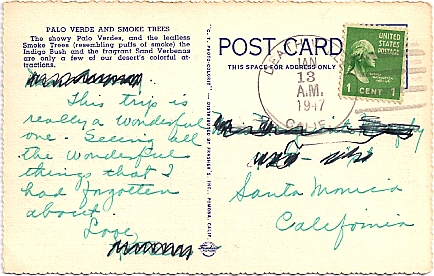 PALO VERDE AND SMOKE TREES
The showy Palo Verdes, and the leafless
Smoke Trees (resembling puffs of smoke) the
Indigo Bush and the fragrant Sand Verbenas
are only a few of our desert's colorful at-
tractions.
This trip is
really a wonderful
one. Seeing all
the wonderful
things that I
had forgotten
about.
Love,
POST CARD
THIS SPACE FOR ADDRESS ONLY
JAN
13
A.M.
1947
CALIF.
UNITED
STATES
POSTAGE
1 CENT 1
Santa Monica
California